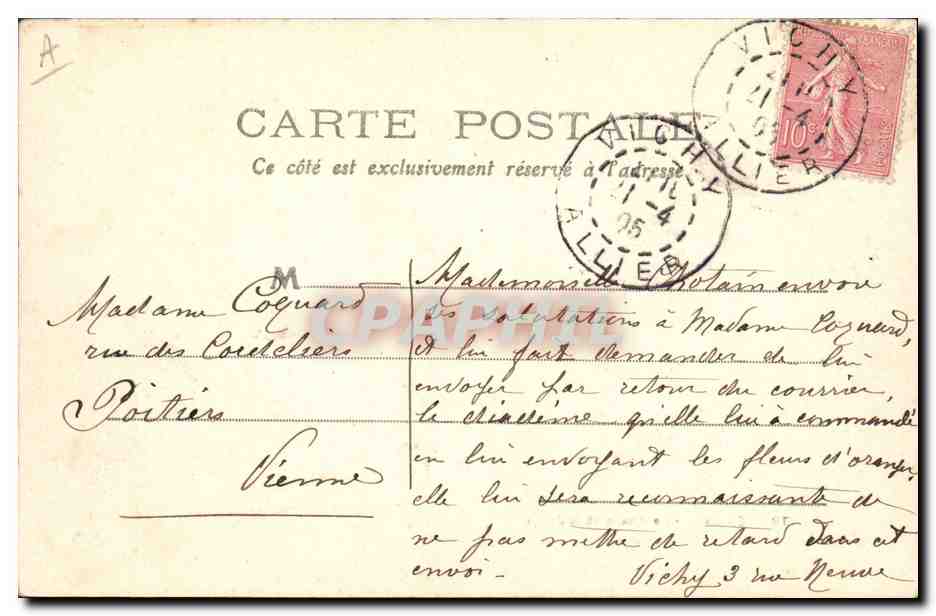 A
CARTE POSTALE
Ce côté est exclusivement réservé à l'adresse
VICHY
21-4
05
ALLIER
VICHY
21-4
05
ALLIER
10c
M
Madame Coquard
rue des Cordeliers
Poitiers
Vienne
Mademoiselle envoie
ses salutations à Madame Coquard,
et lui fait demander de lui
envoyer par retour du courrier,
le diadème qu'elle lui à commandé
en lui envoyant les fleurs d'oranger,
elle lui sera reconnaissante de
ne pas mettre de retard dans cet
envoi-
Vichy 3 rue Neuve
CPAPHIL